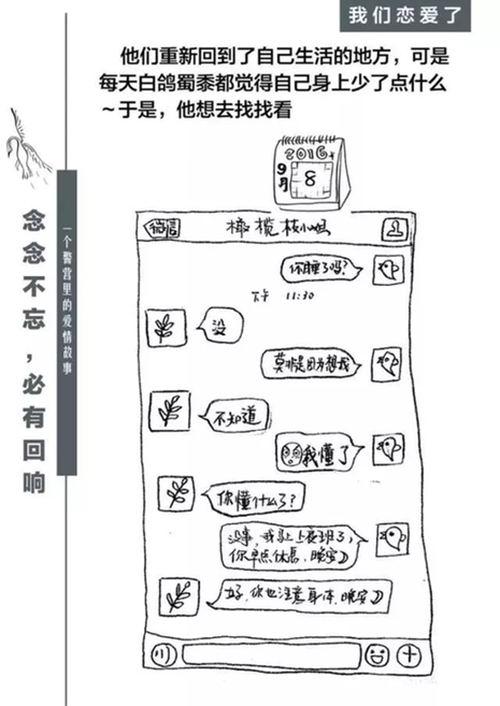 我们恋爱了
他们重新回到了自己生活的地方，可是
每天白鸽蜀黍都觉得自己身上少了点什么
～于是，他想去找找看
念念不忘，必有回响
一个警营里的爱情故事
2016
9月
8
微信
橄榄枝小姐
你睡了吗？
下午 11:30
没
莫非是因为想我
不知道
我懂了
你懂什么了？
没事，我马上要接班了，
你早点休息，晚安
好，你也注意身体，晚安